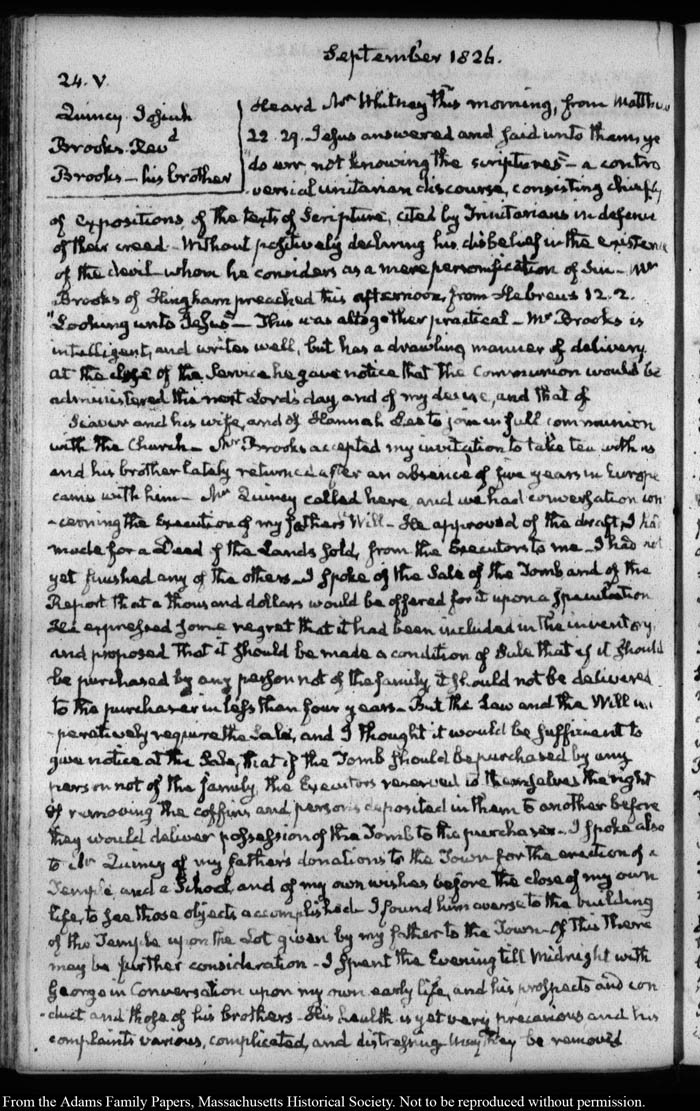 September 1826.
24. V.
Quincy Josiah
Brooks. Revd
Brooks - his brother
Heard Mr Whitney this morning, from Matthew
22. 29. Jesus answered and said unto them, ye
"do err, not knowing the scriptures" - a contro
versial unitarian discourse, consisting chiefly
of expositions of the texts of Scripture, cited by Trinitarians in defence
of their creed - Without positively declaring his disbelief in the existence
of the devil - whom he considers as a mere personification of Sin - Mr
Brooks of Hingham preached this afternoon, from Hebrews 12. 2.
"Looking unto Jesus" - This was altogether practical - Mr Brooks is
intelligent, and writes well, but has a drawling manner of delivery.
At the close of the Service he gave notice that the Communion would be
administered the next Lord's day and of my desire, and that of
Seaver and his wife, and of Hannah to join in full communion
with the Church - Mr Brooks accepted my invitation to take tea with us
and his brother lately returned after an absence of five years in Europe
came with him - Mr Quincy called here and we had conversation con
-cerning the Execution of my father's Will - He approved of the draft I had
made for a Deed of the Lands sold, from the Executors to me - I had not
yet finished any of the others - I spoke of the Sale of the Tomb and of the
Report that a thousand dollars would be offered for it upon a speculation
He expressed some regret that it had been included in the inventory,
and proposed that it should be made a condition of Sale that if it should
be purchased by any person not of the family, it should not be delivered
to the purchaser in less than four years - But the Law and the Will im
-peratively require the Sale, and I thought it would be sufficient to
give notice at the Sale, that if the Tomb should be purchased by any
person not of the family, the Executors reserved to themselves the right
of removing the coffins and persons deposited in them to another before
they would deliver possession of the Tomb to the purchaser - I spoke also
to Mr Quincy of my father's donations to the Town for the erection of a
Temple and a School, and of my own wishes before the close of my own
life, to see those objects accomplished - I found him averse to the building
of the Temple upon the Lot given by my father to the Town - Of this there
may be further consideration - I spent the Evening till Midnight with
George in Conversation upon my own early life, and his prospects and con
-duct and those of his brothers - His health is yet very precarious and his
complaints various, complicated, and distressing. May they be removed
From the Adams Family Papers, Massachusetts Historical Society. Not to be reproduced without permission.